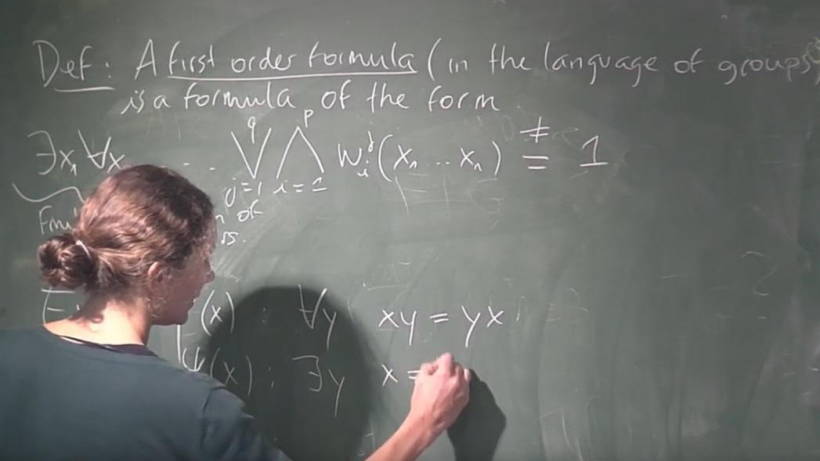 Def: A first order formula (in the language of groups)
is a formula of the form
∃x₁ ∀x ... ⋁_{j=1}^{q} ⋀_{i=1}^{p} w_i^j (x₁ ... xₙ) ≠= 1
of
(x) : ∀y xy = yx
ψ(x) : ∃y x =